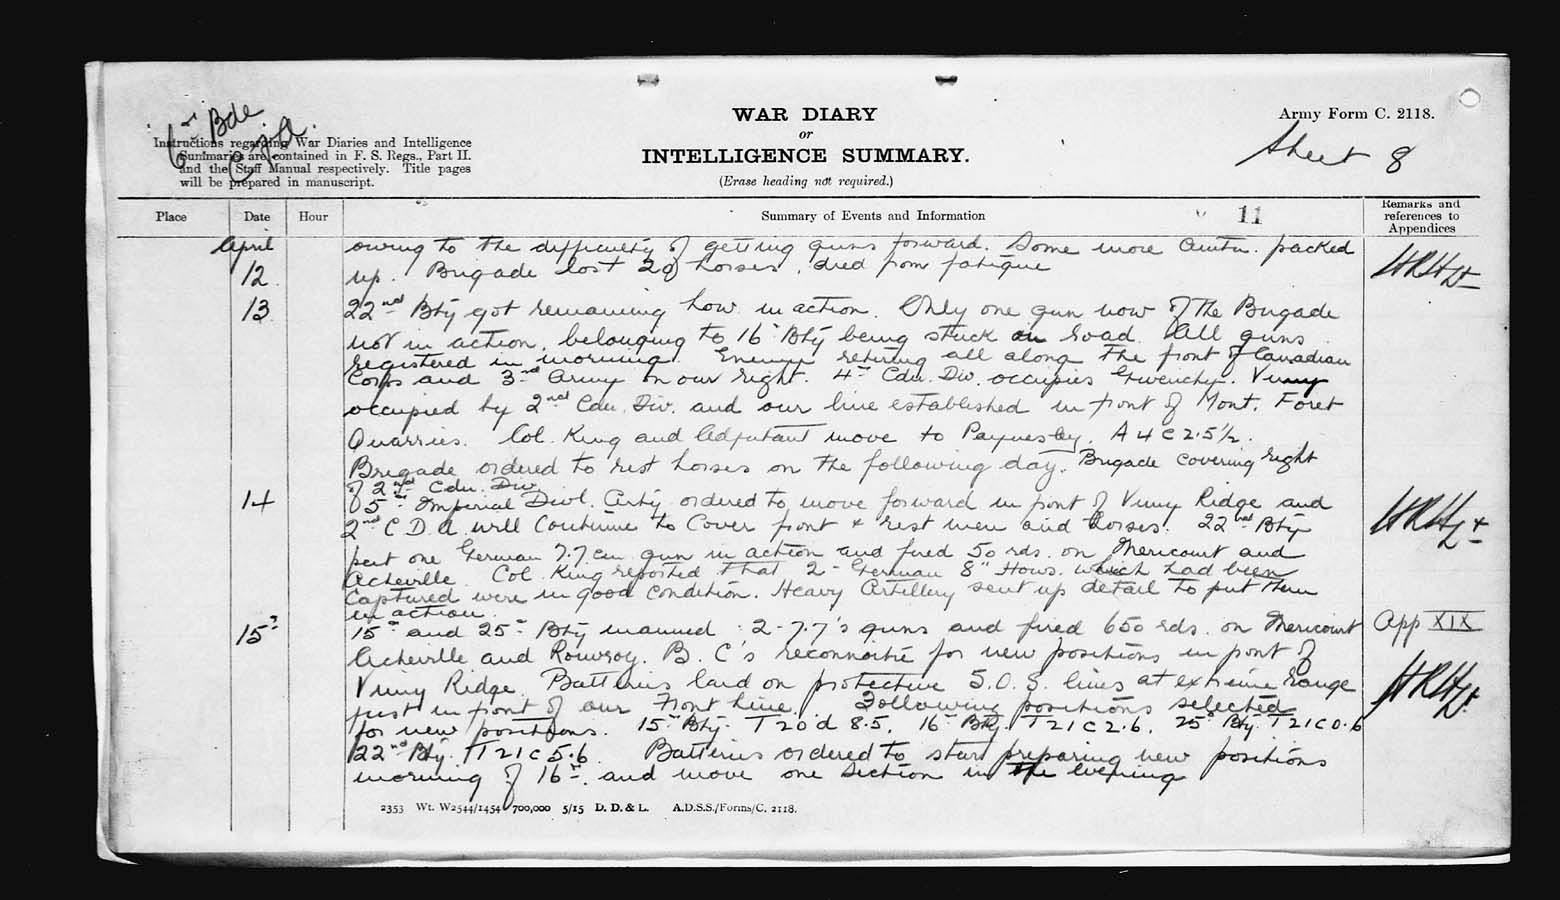 6th Bde
C.F.A.
Instructions regarding War Diaries and Intelligence
Summaries are contained in F. S. Regs., Part II.
and the Staff Manual respectively. Title pages
will be prepared in manuscript.
WAR DIARY
or
INTELLIGENCE SUMMARY.
(Erase heading not required.)
Army Form C. 2118.
Sheet 8
Place Date Hour Summary of Events and Information 11 Remarks and references to Appendices
April owing to the difficulty of getting guns forward. Some more Amtn. packed
12 up. Brigade lost 29 horses, died from fatigue
13 22nd Bty got remaining how. in action. Only one gun now of the Brigade
not in action, belonging to 16 Bty being stuck on road. All guns
registered in morning. Enemy retiring all along the front of Canadian
Corps and 3rd Army on our right. 4th Cdn. Div. occupies Givenchy. Vimy
occupied by 2nd Cdn. Div. and our line established in front of Mont. Foret
Quarries. Col. King and Adjutant move to A 4 c 2.5½.
Brigade ordered to rest horses on the following day. Brigade covering right
of 2nd Cdn. Div.
14 5th Imperial Divl. Arty ordered to move forward in front of Vimy Ridge and
2nd C.D.A. will continue to cover front & rest men and horses. 22nd Bty
put one German 7.7 cm gun in action and fired 50 rds. on Mericourt and
Acheville. Col. King reported that 2 - German 8" Hows. which had been
captured were in good condition. Heavy Artillery sent up detail to put them
in action.
15th 15th and 25th Bty manned 2 - 7.7's guns and fired 650 rds. on Mericourt App XIX
Acheville and Rouvroy. B. C's reconnoitre for new positions in front of
Vimy Ridge. Batteries laid on protective S.O.S. lines at extreme range
just in front of our Front Line. Following positions selected
for new positions. 15th Bty. T 20 d 8.5. 16th Bty. T 21 c 2.6. 25th Bty. T 21 c 0.6
22nd Bty. T 21 c 5.6. Batteries ordered to start preparing new positions
morning of 16th. and move one section in the evening
2353 Wt. W2544/1454 700,000 5/15 D. D. & L. A.D.S.S./Forms/C. 2118.